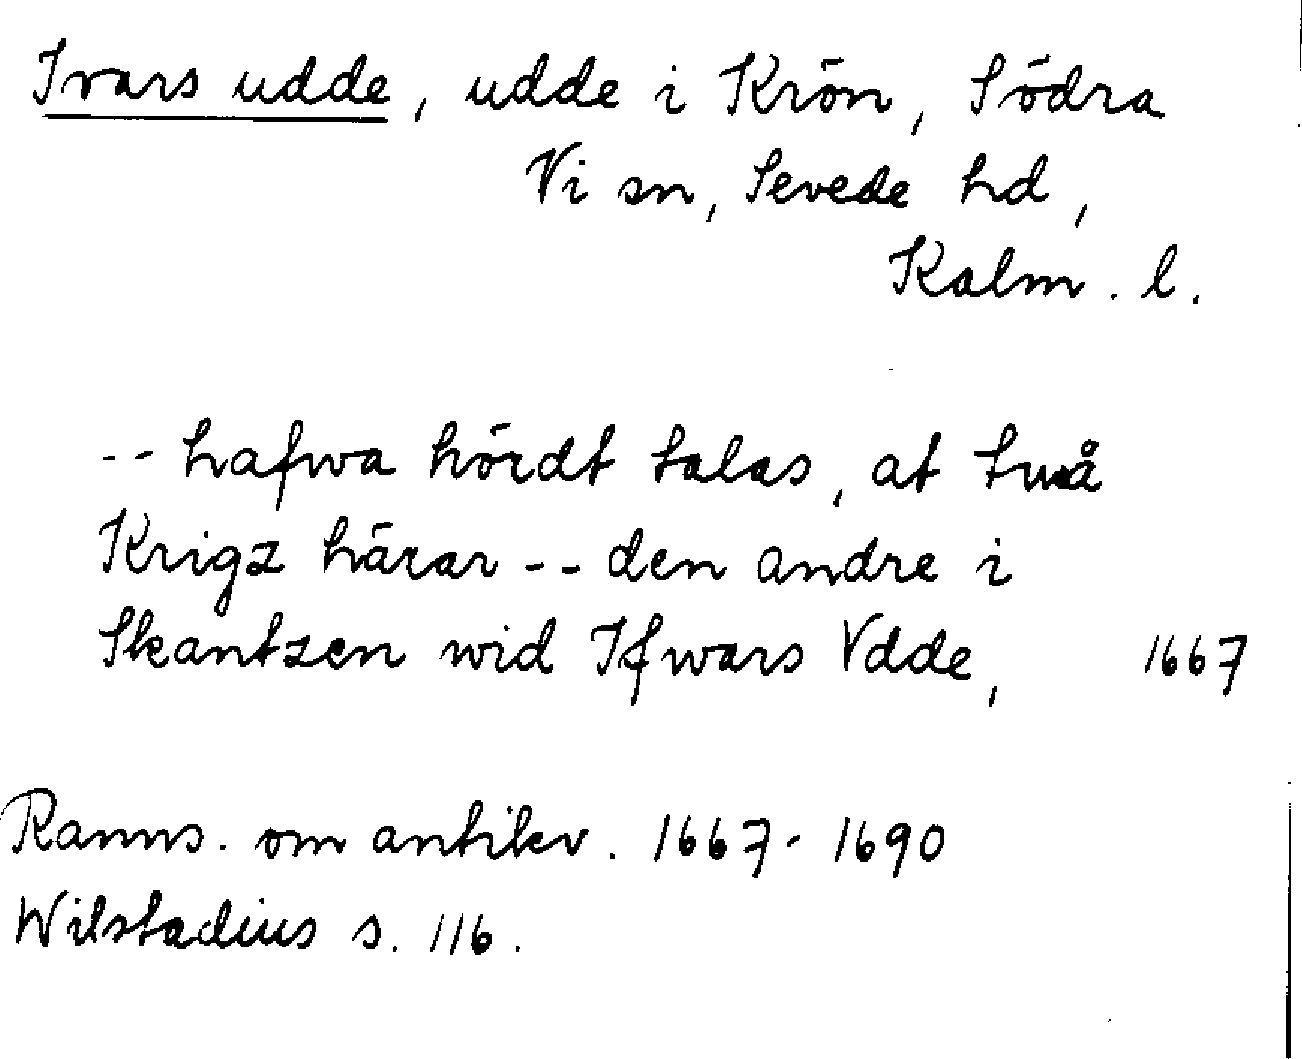 Ivars udde, udde i Krön, Södra
Vi sn, Sevede hd,
Kalm. l.
-- hafwa hördt talas, at twå
Krigz härar -- den andre i
Skantzen wid Ifwars Vdde, 1667
Ranns. om antikv. 1667-1690
Wilstadius s. 116.